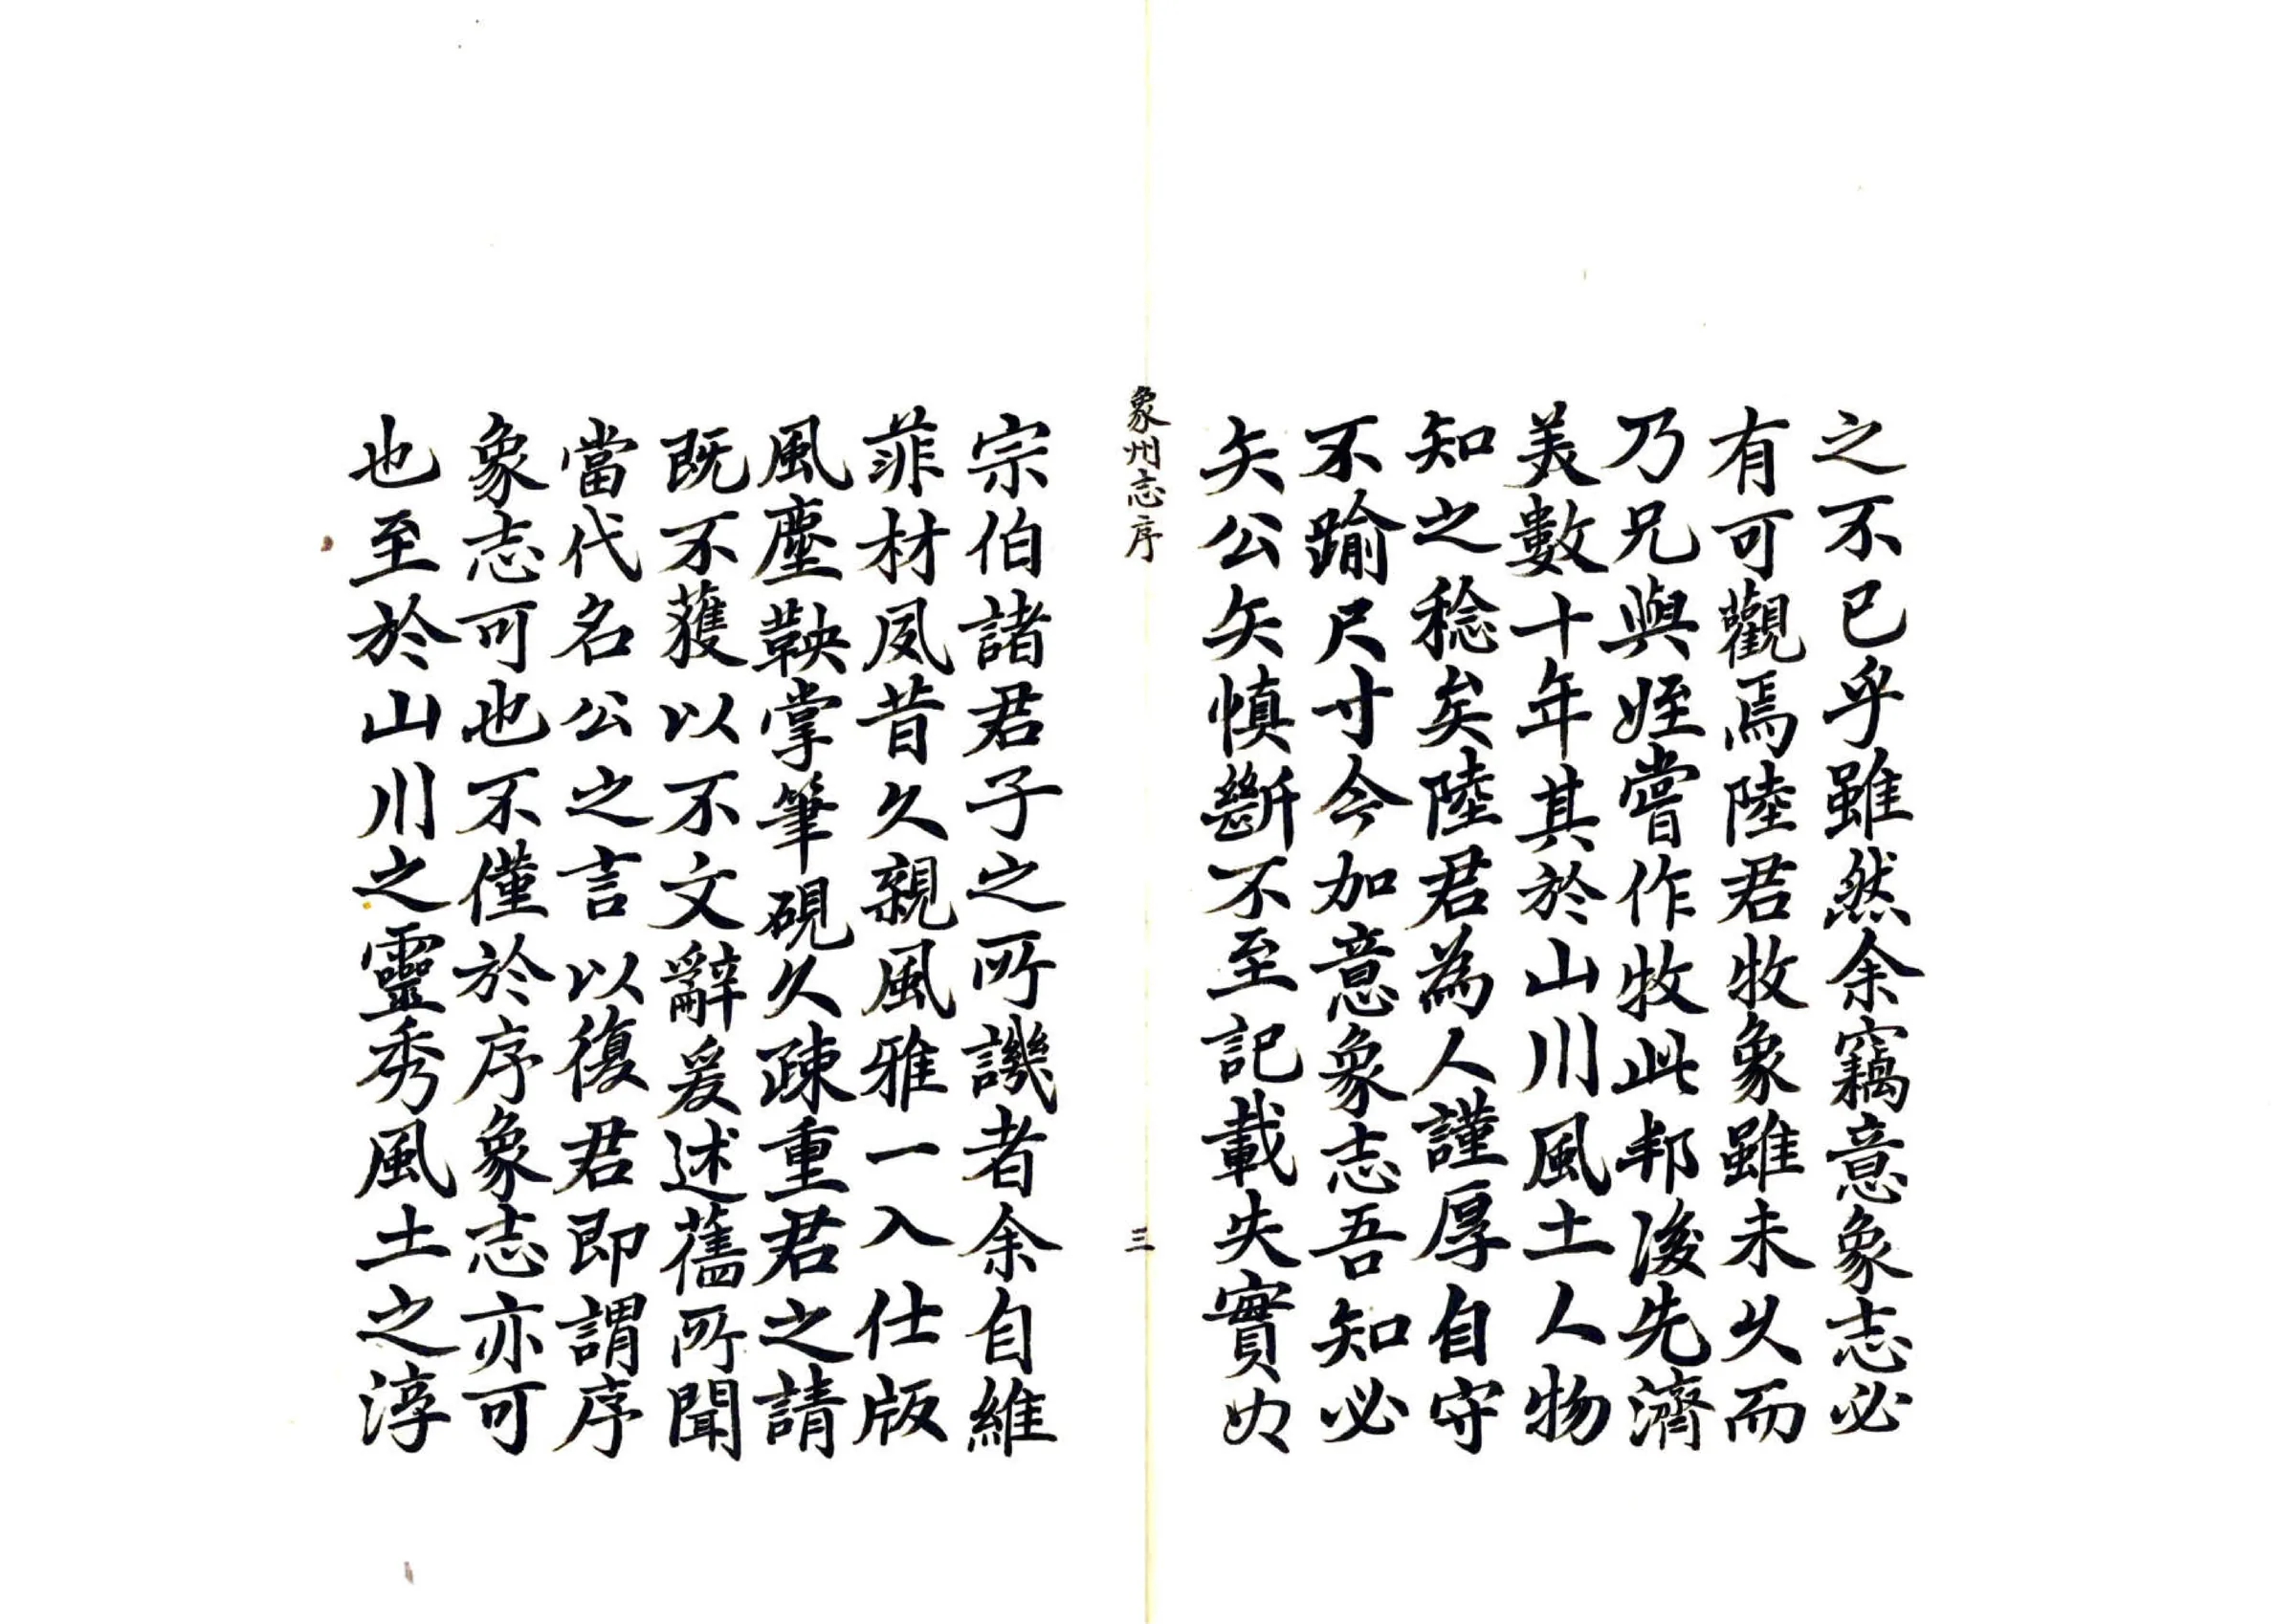 之不已乎雖然余竊意象志必
有可觀焉陸君牧象雖未久而
乃兄與姪嘗作牧此邦後先濟
美數十年其於山川風土人物
知之稔矣陸君為人謹厚自守
不踰尺寸今加意象志吾知必
矢公矢慎斷不至記載失實如
象州志序
三
宗伯諸君子之所譏者余自維
菲材夙昔久親風雅一入仕版
風塵鞅掌筆硯久疎重君之請
既不獲以不文辭爰述舊所聞
當代名公之言以復君即謂序
象志可也不僅於序象志亦可
也至於山川之靈秀風土之淳